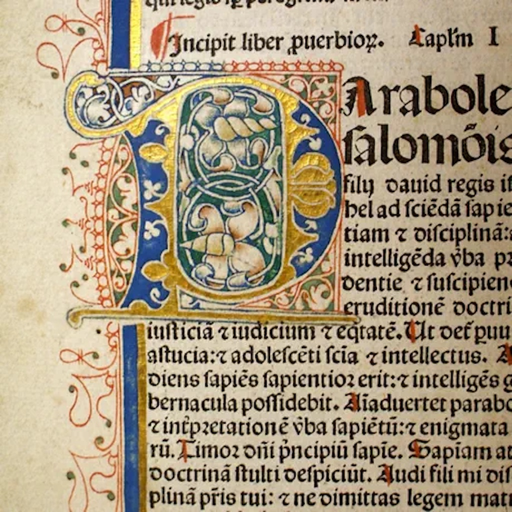 Incipit liber ꝓuerbioꝝ. Capl'm I
Arabole
salomōis
filij dauid regis
hel ad sciēdā sapie
tiam ⁊ disciplinā:
intelligēda ỽba
dentie ⁊ suscipien
eruditionē doctri
iusticiā ⁊ iudicium ⁊ eqtatē. Ut det'
astucia: ⁊ adolescēti sciā ⁊ intellectus.
diens sapiēs sapientioꝛ erit: ⁊ intelligēs
bernacula possidebit. Aīaduertet parabo
⁊ int'pretationē ỽba sapiētū: ⁊ enigmata
rū. Timor dn̄i pn̄cipiū sapīe. Sapiam at
doctrinā stulti despiciūt. Audi fili mi dis
plinā pr̄is tui: ⁊ ne dimittas legem